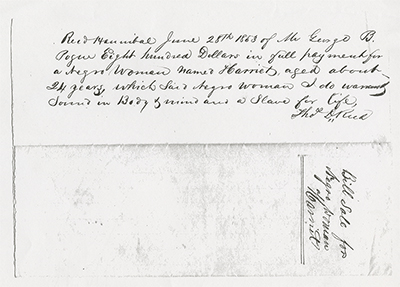 Recd Hannibal June 28th 1853 of Mr George B.
Pogue Eight hundred Dollars in full payment for
a Negro Woman named Harriet, aged about
24 years, which said Negro woman I do warrant
Sound in Body & mind and a Slave for life,
Thos
Bill Sale for
Negro woman
Harriet